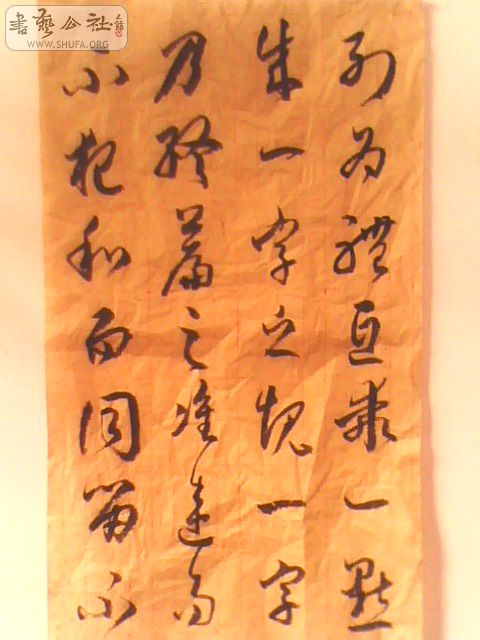 書藝公社
WWW.SHUFA.ORG
列為體互乖一點
成一字之規一字
乃終篇之准違而
不犯和而同留不